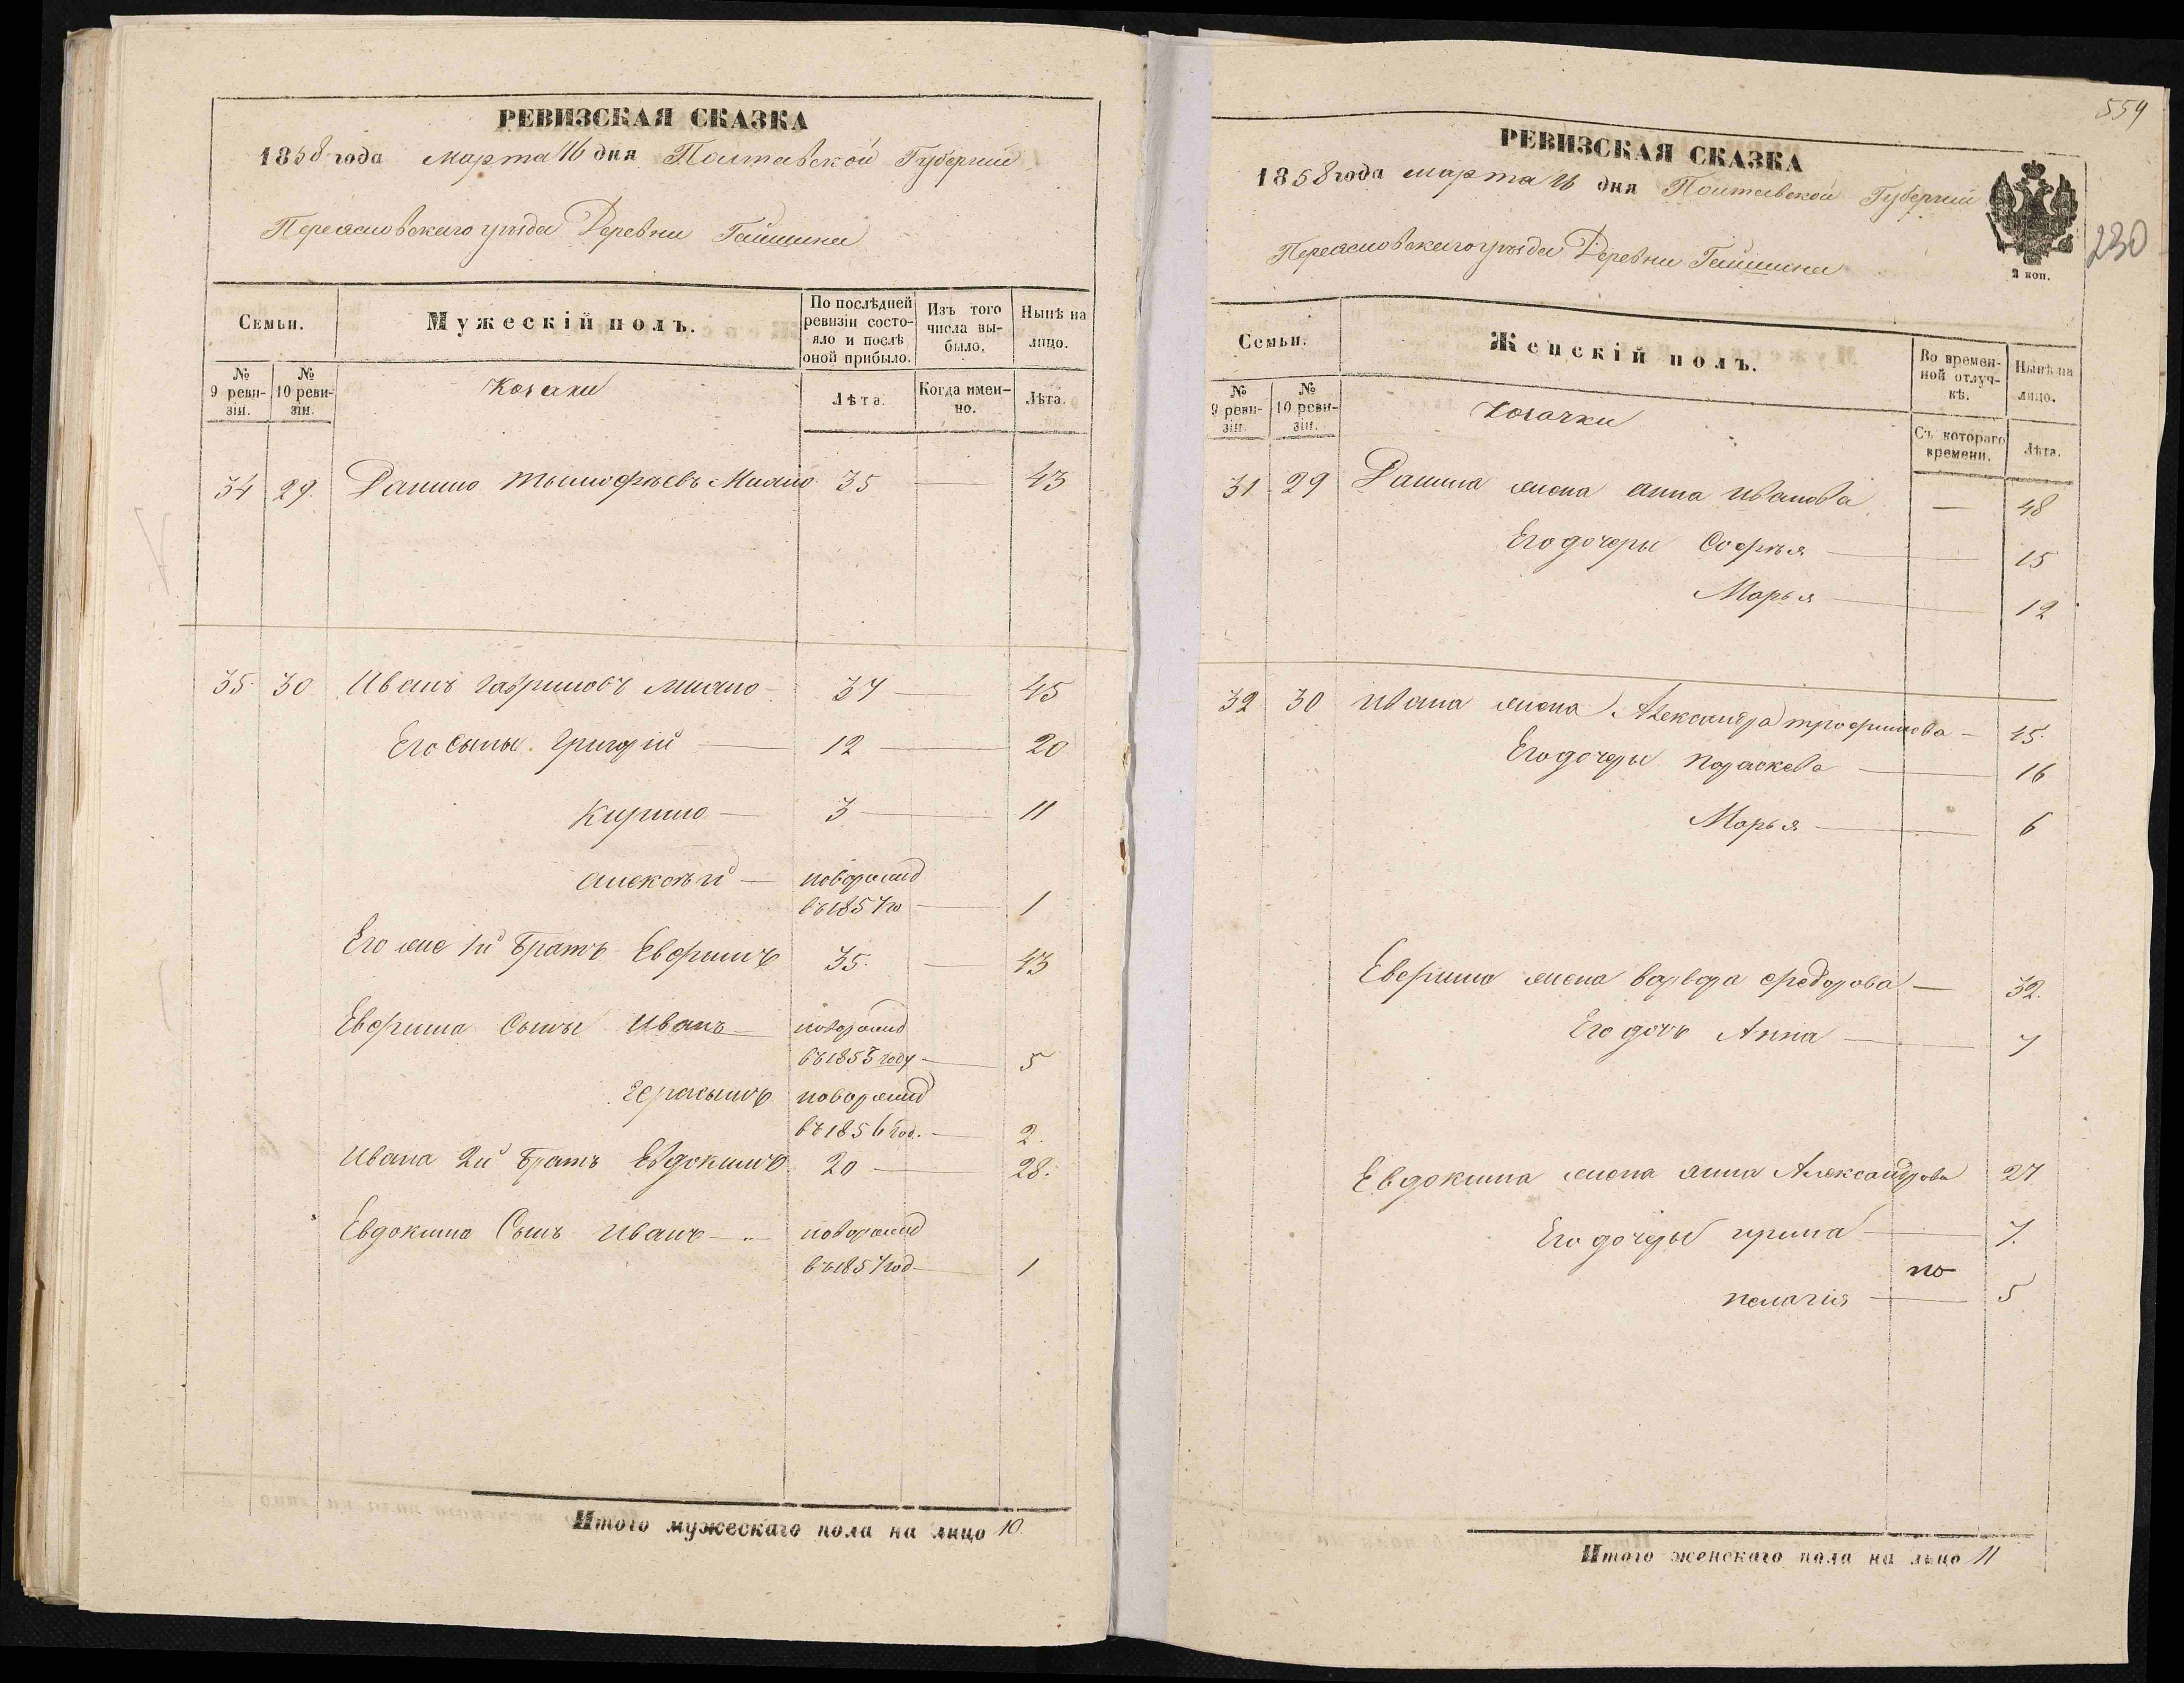 РЕВИЗСКАЯ СКАЗКА
1858 года марта 16 дня Полтавской Губернии
Переясловскаго уезда Деревни Гайшина
Семьи.
Мужескій полъ.
По послѣдней ревизіи состояло и послѣ оной прибыло.
Изъ того числа выбыло.
Нынѣ на лицо.
№ 9 ревизіи.
№ 10 ревизіи.
Козаки
Лѣта.
Когда именно.
Лѣта.
34 29. Данило Тымофѣевъ 35 — 43
35. 30 Иванъ Гавриловъ 37 — 45
Его сыны Григорій — 12 — 20
Кирило — 3 — 11
Алексѣй — новорожд
въ 1857 го — 1
Его же 1й братъ Евфимъ 35. — 43
Евфима сыны Иванъ — новорожд
въ 1853 году — 5
Герасымъ новорожд
въ 1856 год. — 2.
Ивана 2й братъ Евдокимъ 20 — 28.
Евдокима сынъ Иванъ — новорожд
въ 1857 год — 1
Итого мужескаго пола на лицо 10.
559
РЕВИЗСКАЯ СКАЗКА
1858 года марта 16 дня Полтавской Губерний
230
Переясловскаго уезда Деревни Гайшина
2 коп.
Семьи.
Женскій полъ.
Во временной отлучкѣ.
Нынѣ на лицо.
№ 9 ревизіи.
№ 10 ревизіи.
Козачки
Съ котораго времени.
Лѣта.
31 29 Данила жена Анна Иванова — 48
Его дочери Софья — 15
Марья — 12
32 30 Ивана жена Александра Трофимова — 45.
Его дочеры Параскева — 16
Марья — 6
Евфима жена Варвара Федорова — 32.
Его дочь Анна — 7
Евдокима жена Анна Александрова 27
Его дочеры Ирина — 7.
по
Пелагія — 5
Итого женскаго пола на лицо 11